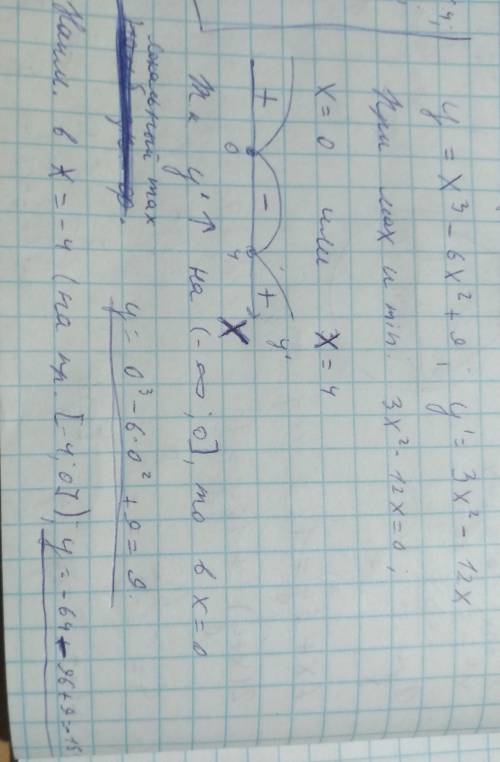 y = x³ - 6x² + 9; y' = 3x² - 12x
При max и min. 3x² - 12x = 0;
x = 0 или x = 4
+ 0 - 4 + y'
X
Тк y'↑ на (-∞; 0], то в x = 0
локальный max
y = 0³ - 6·0² + 9 = 9.
Наим. в x = -4 (на пр. [-4; 0]) y = -64 - 96 + 9 = -15